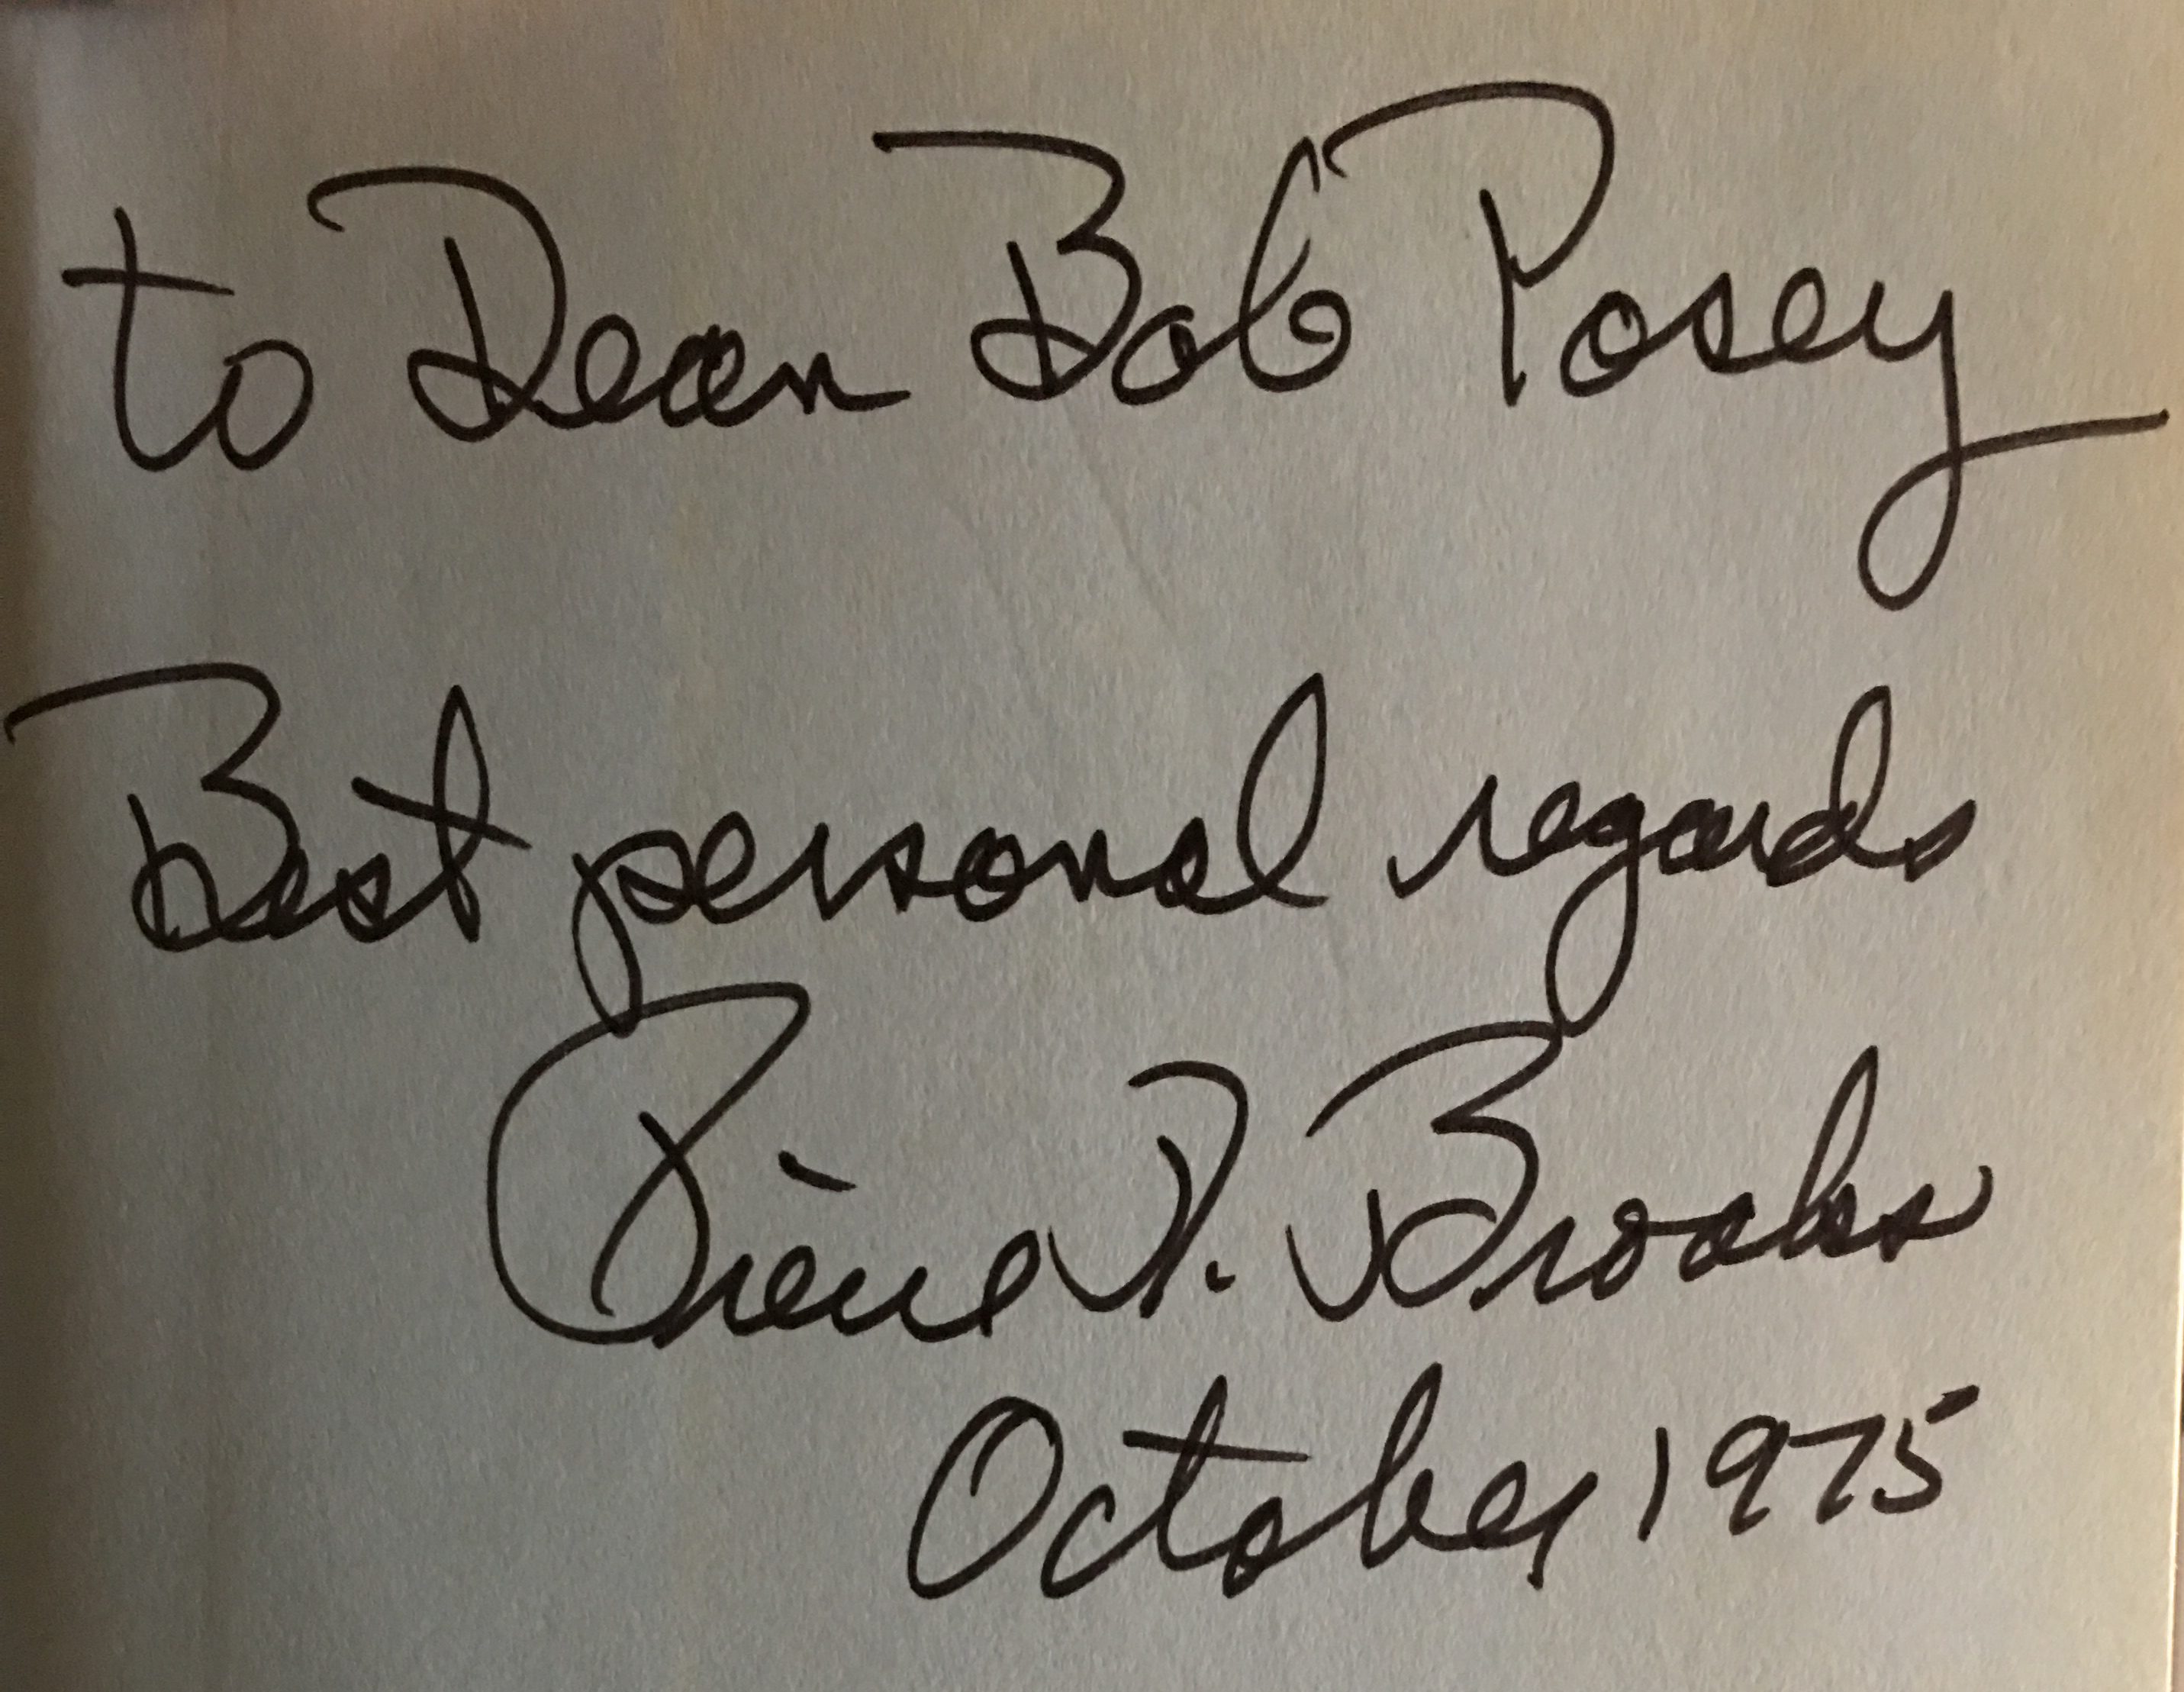 to Dean Bob Posey
Best personal regards
P. Brooks
October 1975